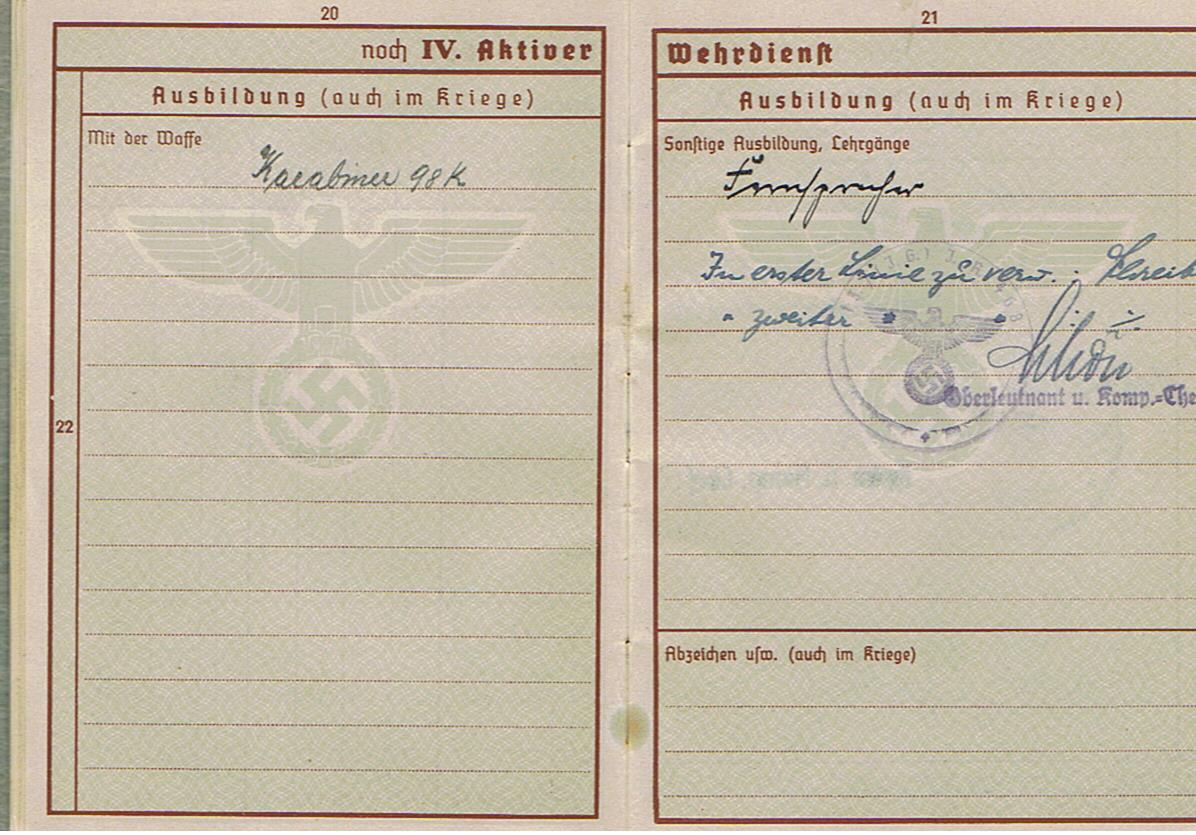 20
noch IV. Aktiver
Ausbildung (auch im Kriege)
Mit der Waffe
Karabiner 98 K
22
21
Wehrdienst
Ausbildung (auch im Kriege)
Sonstige Ausbildung, Lehrgänge
Fernsprecher
In erster Linie zu verw. :
" zweiter " " : ./.
Oberleutnant u. Komp.=Che
Abzeichen usw. (auch im Kriege)